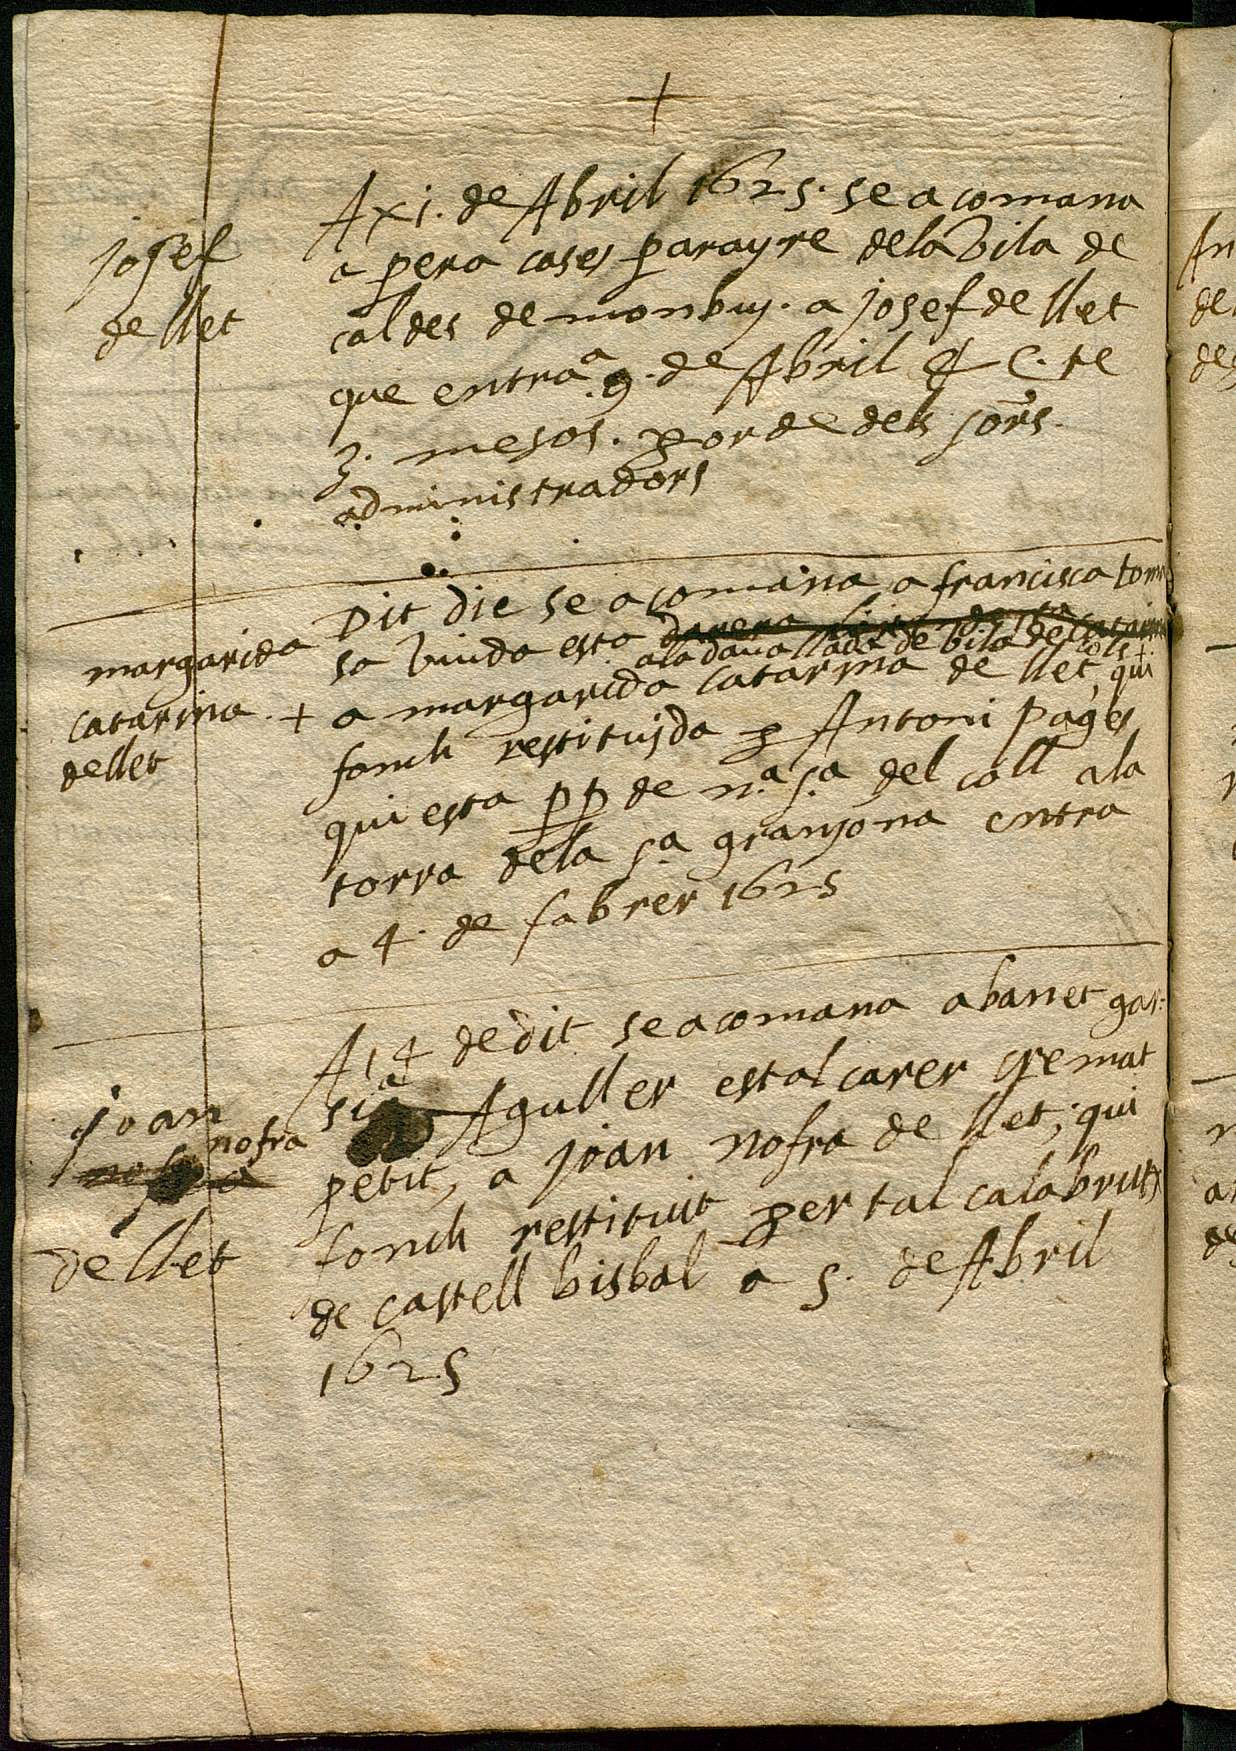 +
josef
de llet
A xi. de Abril 1625. se acomana
a pera cases parayre dela Vila de
caldes de monbuy. a josef de llet
que entra a 9. de Abril & C. te
3. mesos. p orde dels sors.
administradors
margarida
catarina. +
de llet
Dit die se acomana a francisca toma
sa viuda esta darera
ala davallada de
a margarida catarina de llet, qui
fonch restituida p Antoni pages
qui esta pp de n.a s.a del coll ala
torra dela s.a granjona entra
a 4. de fabrer 1625
joan
nofra
de llet
A 14 de dit se acomana a banet gar-
sia Aguller esta al carer cremat
petit, a joan nofra de llet, qui
fonch restituit per tal calabruix
de castell bisbal a 5. de Abril
1625